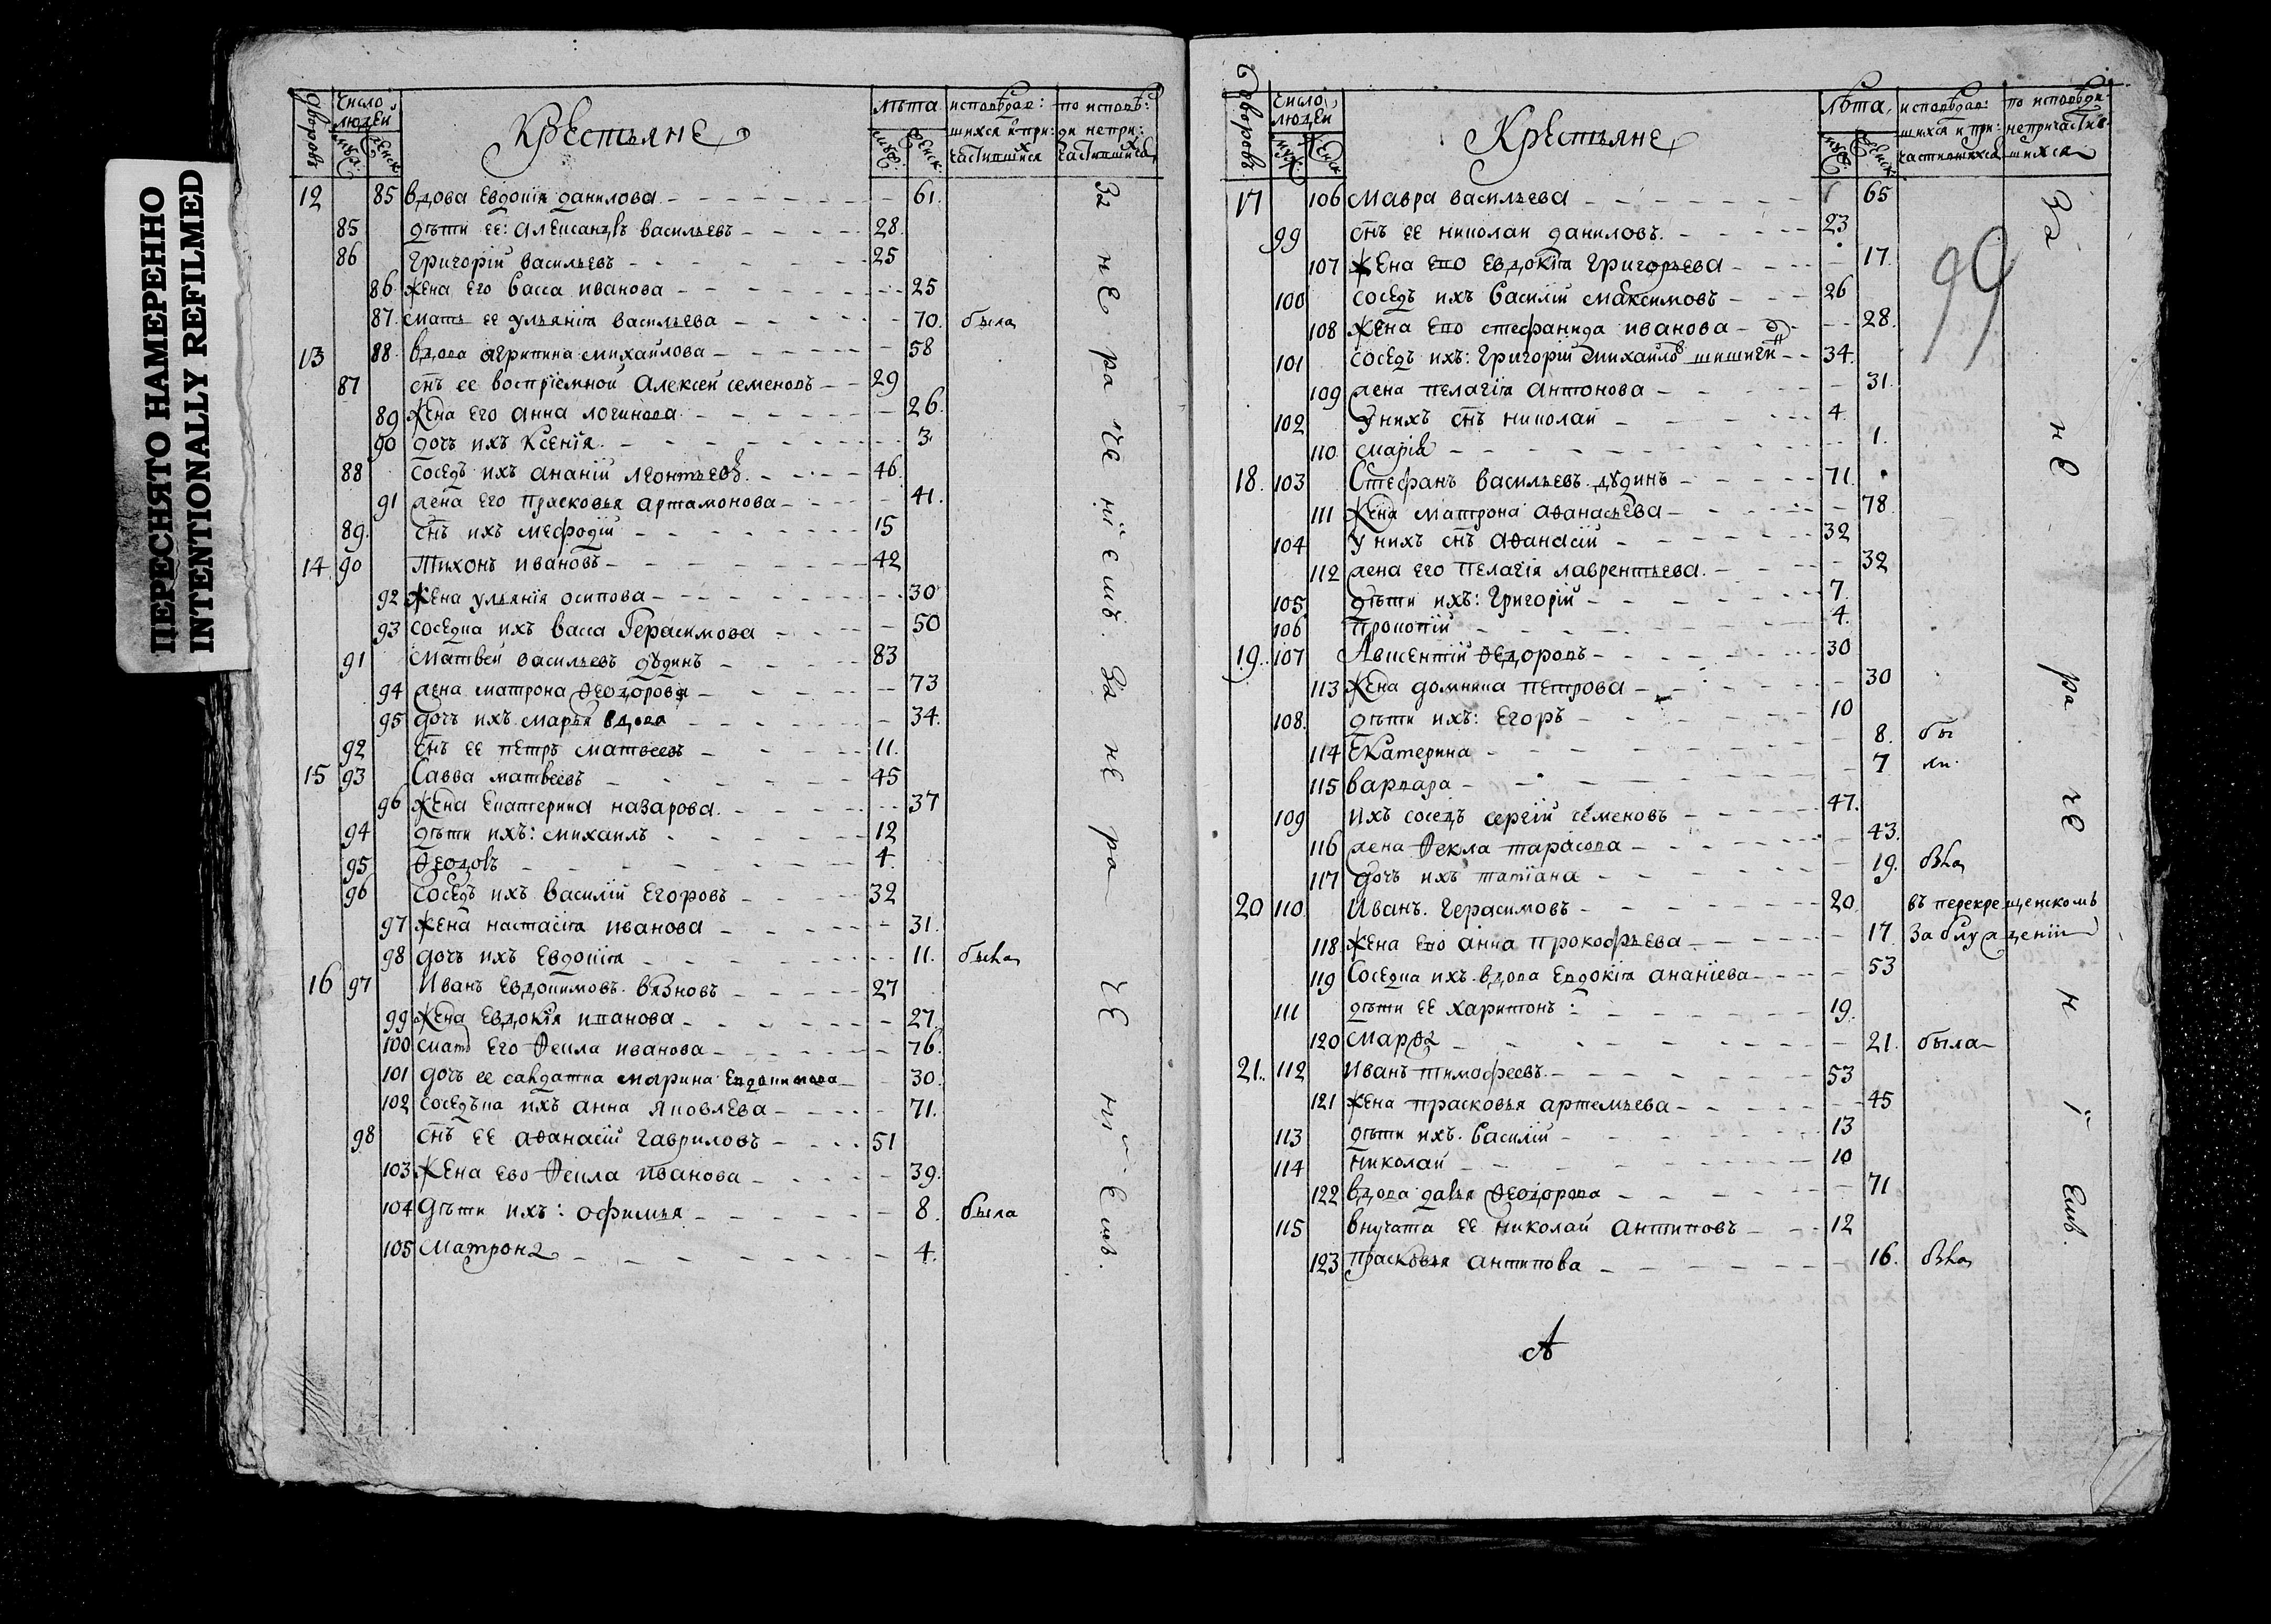 ПЕРЕСНЯТО НАМЕРЕННО
INTENTIONALLY REFILMED
дворовъ
число людей
муж.
женск.
Крестьяне
лѣта
муж.
женск.
исповѣдав: шихся и при: частившихся
по исповѣ: ди непри: частившихся
12 85 вдова Евдокія данилова 61.
85 дѣти ее: Алеѯандръ васильевъ 28.
86 Григорій васильевъ 25
86 жена его васса иванова 25
87. мать ее ульянія васильева 70. была
13 88. вдова агрипина михаилова 58
87 снъ ее воспріемной Алексей семеновъ 29
89 жена его анна логинова 26.
90 дочь ихъ Ксенія 3.
88 соседъ ихъ ананій леонтьевъ 46.
91 жена его прасковья артамонова 41.
89. снъ ихъ мефодій 15
14 90 Тихонъ ивановъ 42
92 жена ульянія осипова 30
93 соседка ихъ васса Герасимова 50
91 Матвей васильевъ дудинъ 83
94 жена матрона Ѳеодорова 73
95 дочь ихъ марья вдова 34.
92 снъ ее петръ матвеевъ 11.
15 93 Савва матвеевъ 45
96 жена Екатерина назарова 37
94 дѣти ихъ: михаилъ 12
95 Ѳеодоръ 4.
96 соседъ ихъ василій Егоровъ 32
97 жена настасія иванова 31.
98 дочь ихъ Евдокія 11. была
16 97 Иванъ Евдокимовъ вязновъ 27
99 жена Евдокія иванова 27.
100 мать Его Ѳекла иванова 76.
101 дочь ее салдатка марина Евдокимова 30.
102 соседъка ихъ анна яковлева 71.
98 снъ ее аѳанасій гавриловъ 51
103 жена ево Ѳекла иванова 39.
104 дѣти ихъ: офимья 8. была
105 матрона 4.
За нерачениемъ. За нерачениемъ.
дворовъ
число людей
муж.
женск.
Крестьяне
лѣта
муж.
женск.
исповѣдав: шихся и при: частившихся
по исповѣди непричастив: шихся
99
17 106 мавра васильева 65
99 снъ ее николай даниловъ 23
107 жена его Евдокія григорьева 17.
100 соседъ ихъ василій максимовъ 26
108 жена его стефанида иванова 28.
101 соседъ ихъ: григорій михаилов 34.
109 жена пелагія антонова 31.
102 у нихъ снъ николай 4.
110 марія 1.
18. 103 Стефанъ васильевъ дудинъ 71.
111 жена матрона аѳанасьева 78
104 у нихъ снъ аѳанасій 32
112 жена его пелагія лаврентьева 32
105 дѣти ихъ: григорій 7.
106 прокопій 4.
19. 107 Авксентій Ѳедоровъ 30
113 жена домника петрова 30
108. дѣти ихъ: Егоръ 10
114 Екатерина 8. бы
115 варвара 7 ли.
109 ихъ соседъ сергій семеновъ 47.
116 жена Ѳекла тарасова 43.
117 дочь ихъ татіана 19. была
20 110 Иванъ герасимовъ 20. въ перекрещенскомъ
118 жена его анна прокофьева 17 заблужденіи
119 соседка ихъ вдова Евдокія ананіева 53
111 дѣти ее харитонъ: 19.
120 марѳа 21. была
21. 112 Иванъ тимофеевъ 53
121 жена прасковья артемьева 45
113 дѣти ихъ. василій 13
114 николай 10
122 вдова дарья Ѳеодорова 71
115 внучата ее николай антиповъ 12
123 прасковья антипова 16. была
За нераченіемъ.